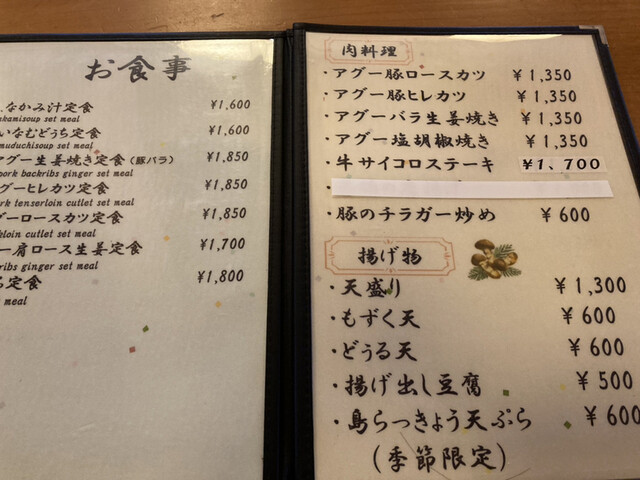 お食事
なかみ汁定食 ¥1,600
akamisoup set meal
いなむどぅち定食 ¥1,600
muduchisoup set meal
アグー生姜焼き定食(豚バラ) ¥1,850
pork backribs ginger set meal
グーヒレカツ定食 ¥1,850
ork tenserloin cutlet set meal
グーロースカツ定食 ¥1,850
kloin cutlet set meal
ー肩ロース生姜定食 ¥1,700
ribs ginger set meal
定食 ¥1,800
meal
肉料理
・アグー豚ロースカツ ¥1,350
・アグー豚ヒレカツ ¥1,350
・アグーバラ生姜焼き ¥1,350
・アグー塩胡椒焼き ¥1,350
・牛サイコロステーキ ¥1,700
・豚のチラガー炒め ¥600
揚げ物
・天盛り ¥1,300
・もずく天 ¥600
・どぅる天 ¥600
・揚げ出し豆腐 ¥500
・島らっきょう天ぷら ¥600
(季節限定)